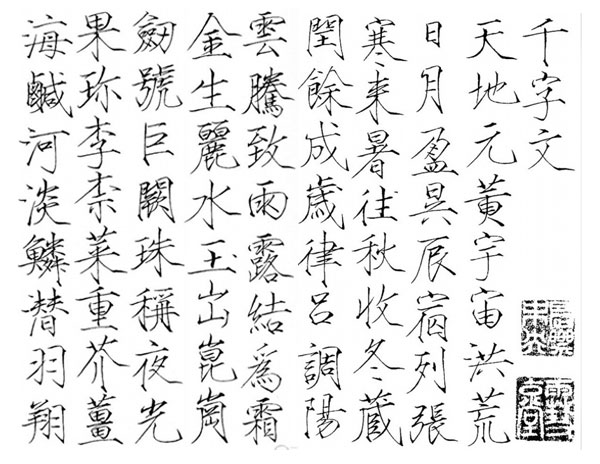 千字文
天地元黃宇宙洪荒
日月盈昃辰宿列張
寒来暑往秋收冬蔵
閏餘成歲律呂調陽
雲騰致雨露結爲霜
金生麗水玉出崑崗
劍號巨闕珠稱夜光
果珎李柰菜重芥薑
海鹹河淡鱗替羽翔